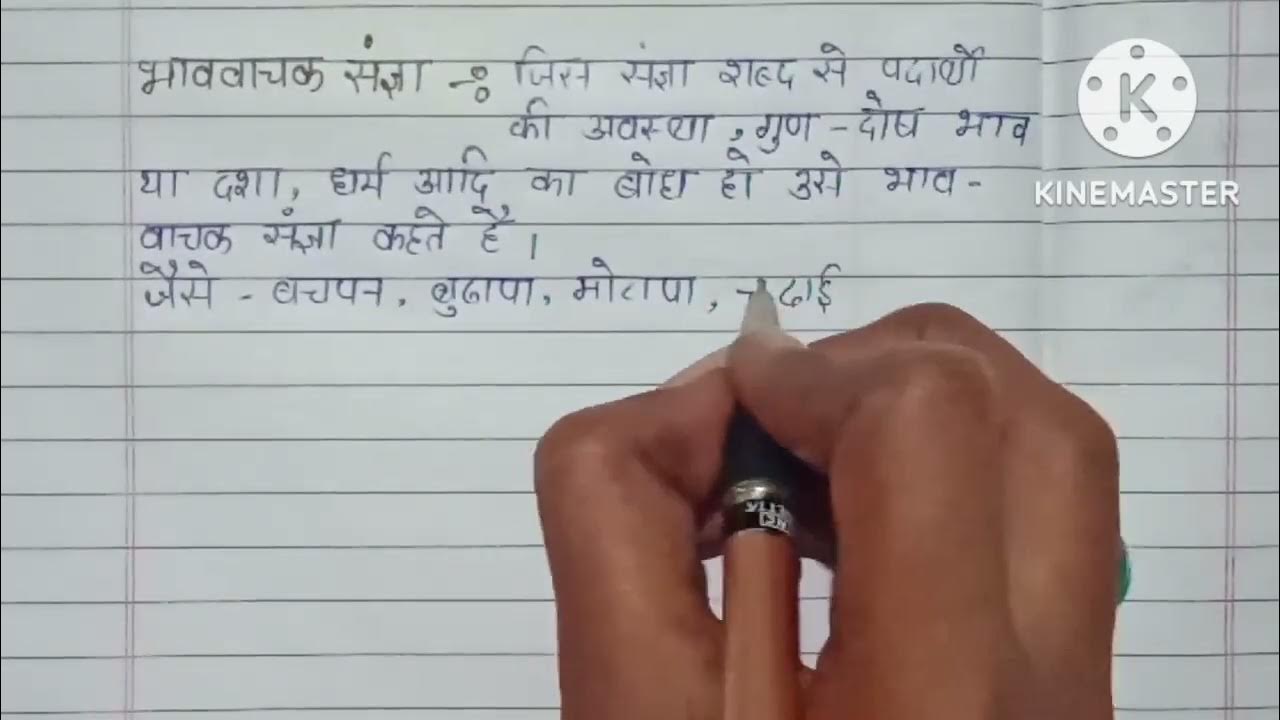 भाववाचक संज्ञा -: जिस संज्ञा शब्द से पदार्थो
की अवस्था, गुण - दोष भाव
या दशा, धर्म आदि का बोध हो उसे भाव-
वाचक संज्ञा कहते है।
जैसे - बचपन, बुढापा, मोटापा,
K
KINEMASTER